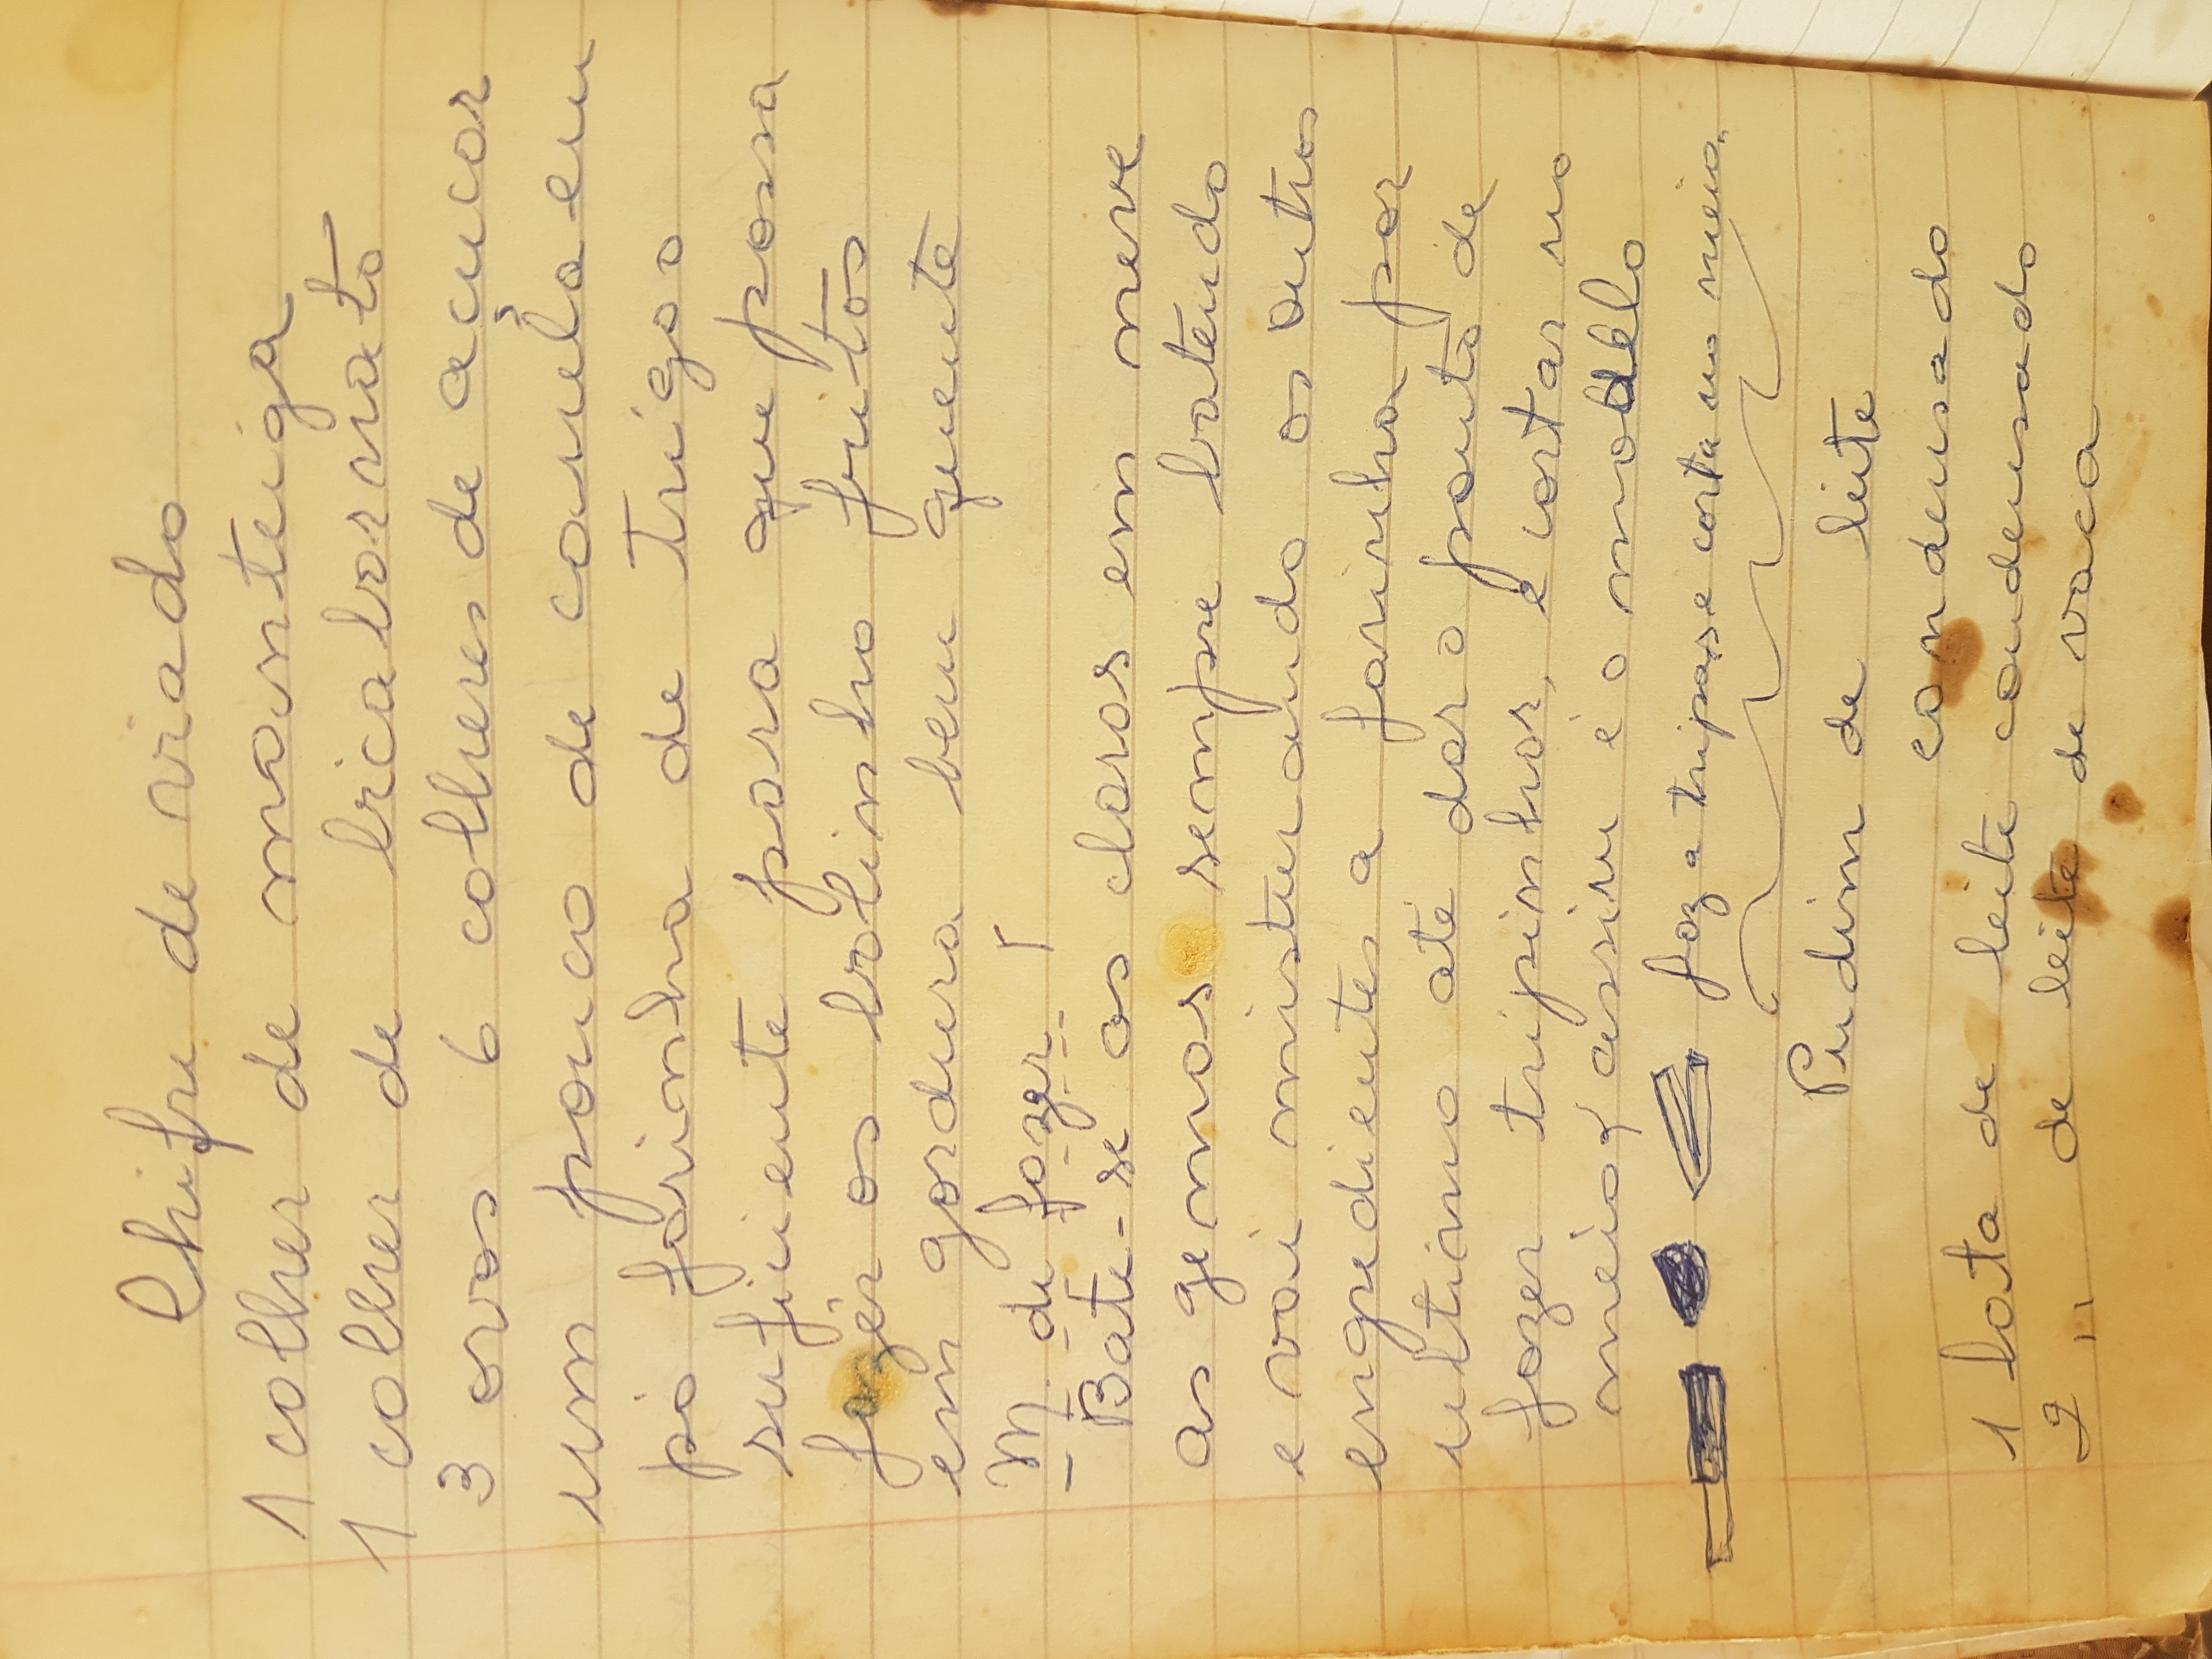 Chifre de viado
1 colher de manteiga
1 colher de bicabornato
3 ovos 6 colheres de açucar
um pouco de canela em
pó farinha de trigo o
sufiente para que possa
fazer os bolinho fritos
em gordura bem quente
M. de fazer.
Bate-se as claras em neve
as gemas sempre batendo
e vai misturando os outros
engredientes a farinha por
ultimo até dar o ponto de
fazer tripinhas, e cortar no
meio assim é o modelo
faz a tripas e corta no meio.
Pudim de leite
condensado
1 lata de leite condensado
2 " de leite de vaca